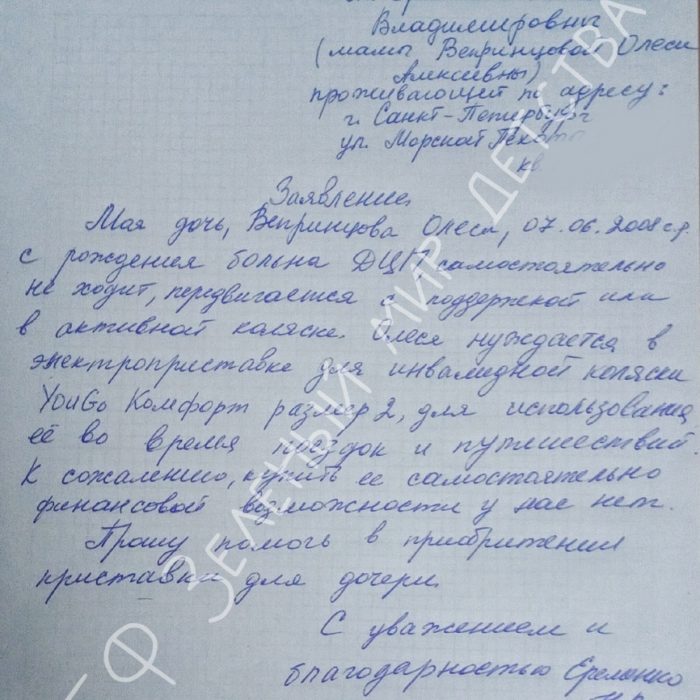 Владимировны
(мамы Вепринцовой Олеси
Алексевны)
проживающей по адресу:
г. Санкт-Петербург
ул. Морской Пехоты
кв.
Заявление.
Мая дочь, Вепринцова Олеся, 07.06.2008 г.р.
с рождения больна ДЦП самостоятельно
не ходит, передвигается с поддержкой или
в активной коляске. Олеся нуждается в
электроприставке для инвалидной коляски
YouGo Комфорт размер 2, для использования
её во время поездок и путишествий.
К сожалению, купить ее самостоятельно
финансовой возможности у нас нет.
Прошу помочь в приобритении
приставки для дочери.
С уважением и
благодарностью Еременко
БФ ЗЕЛЕНЫЙ МИР ДЕТСТВА